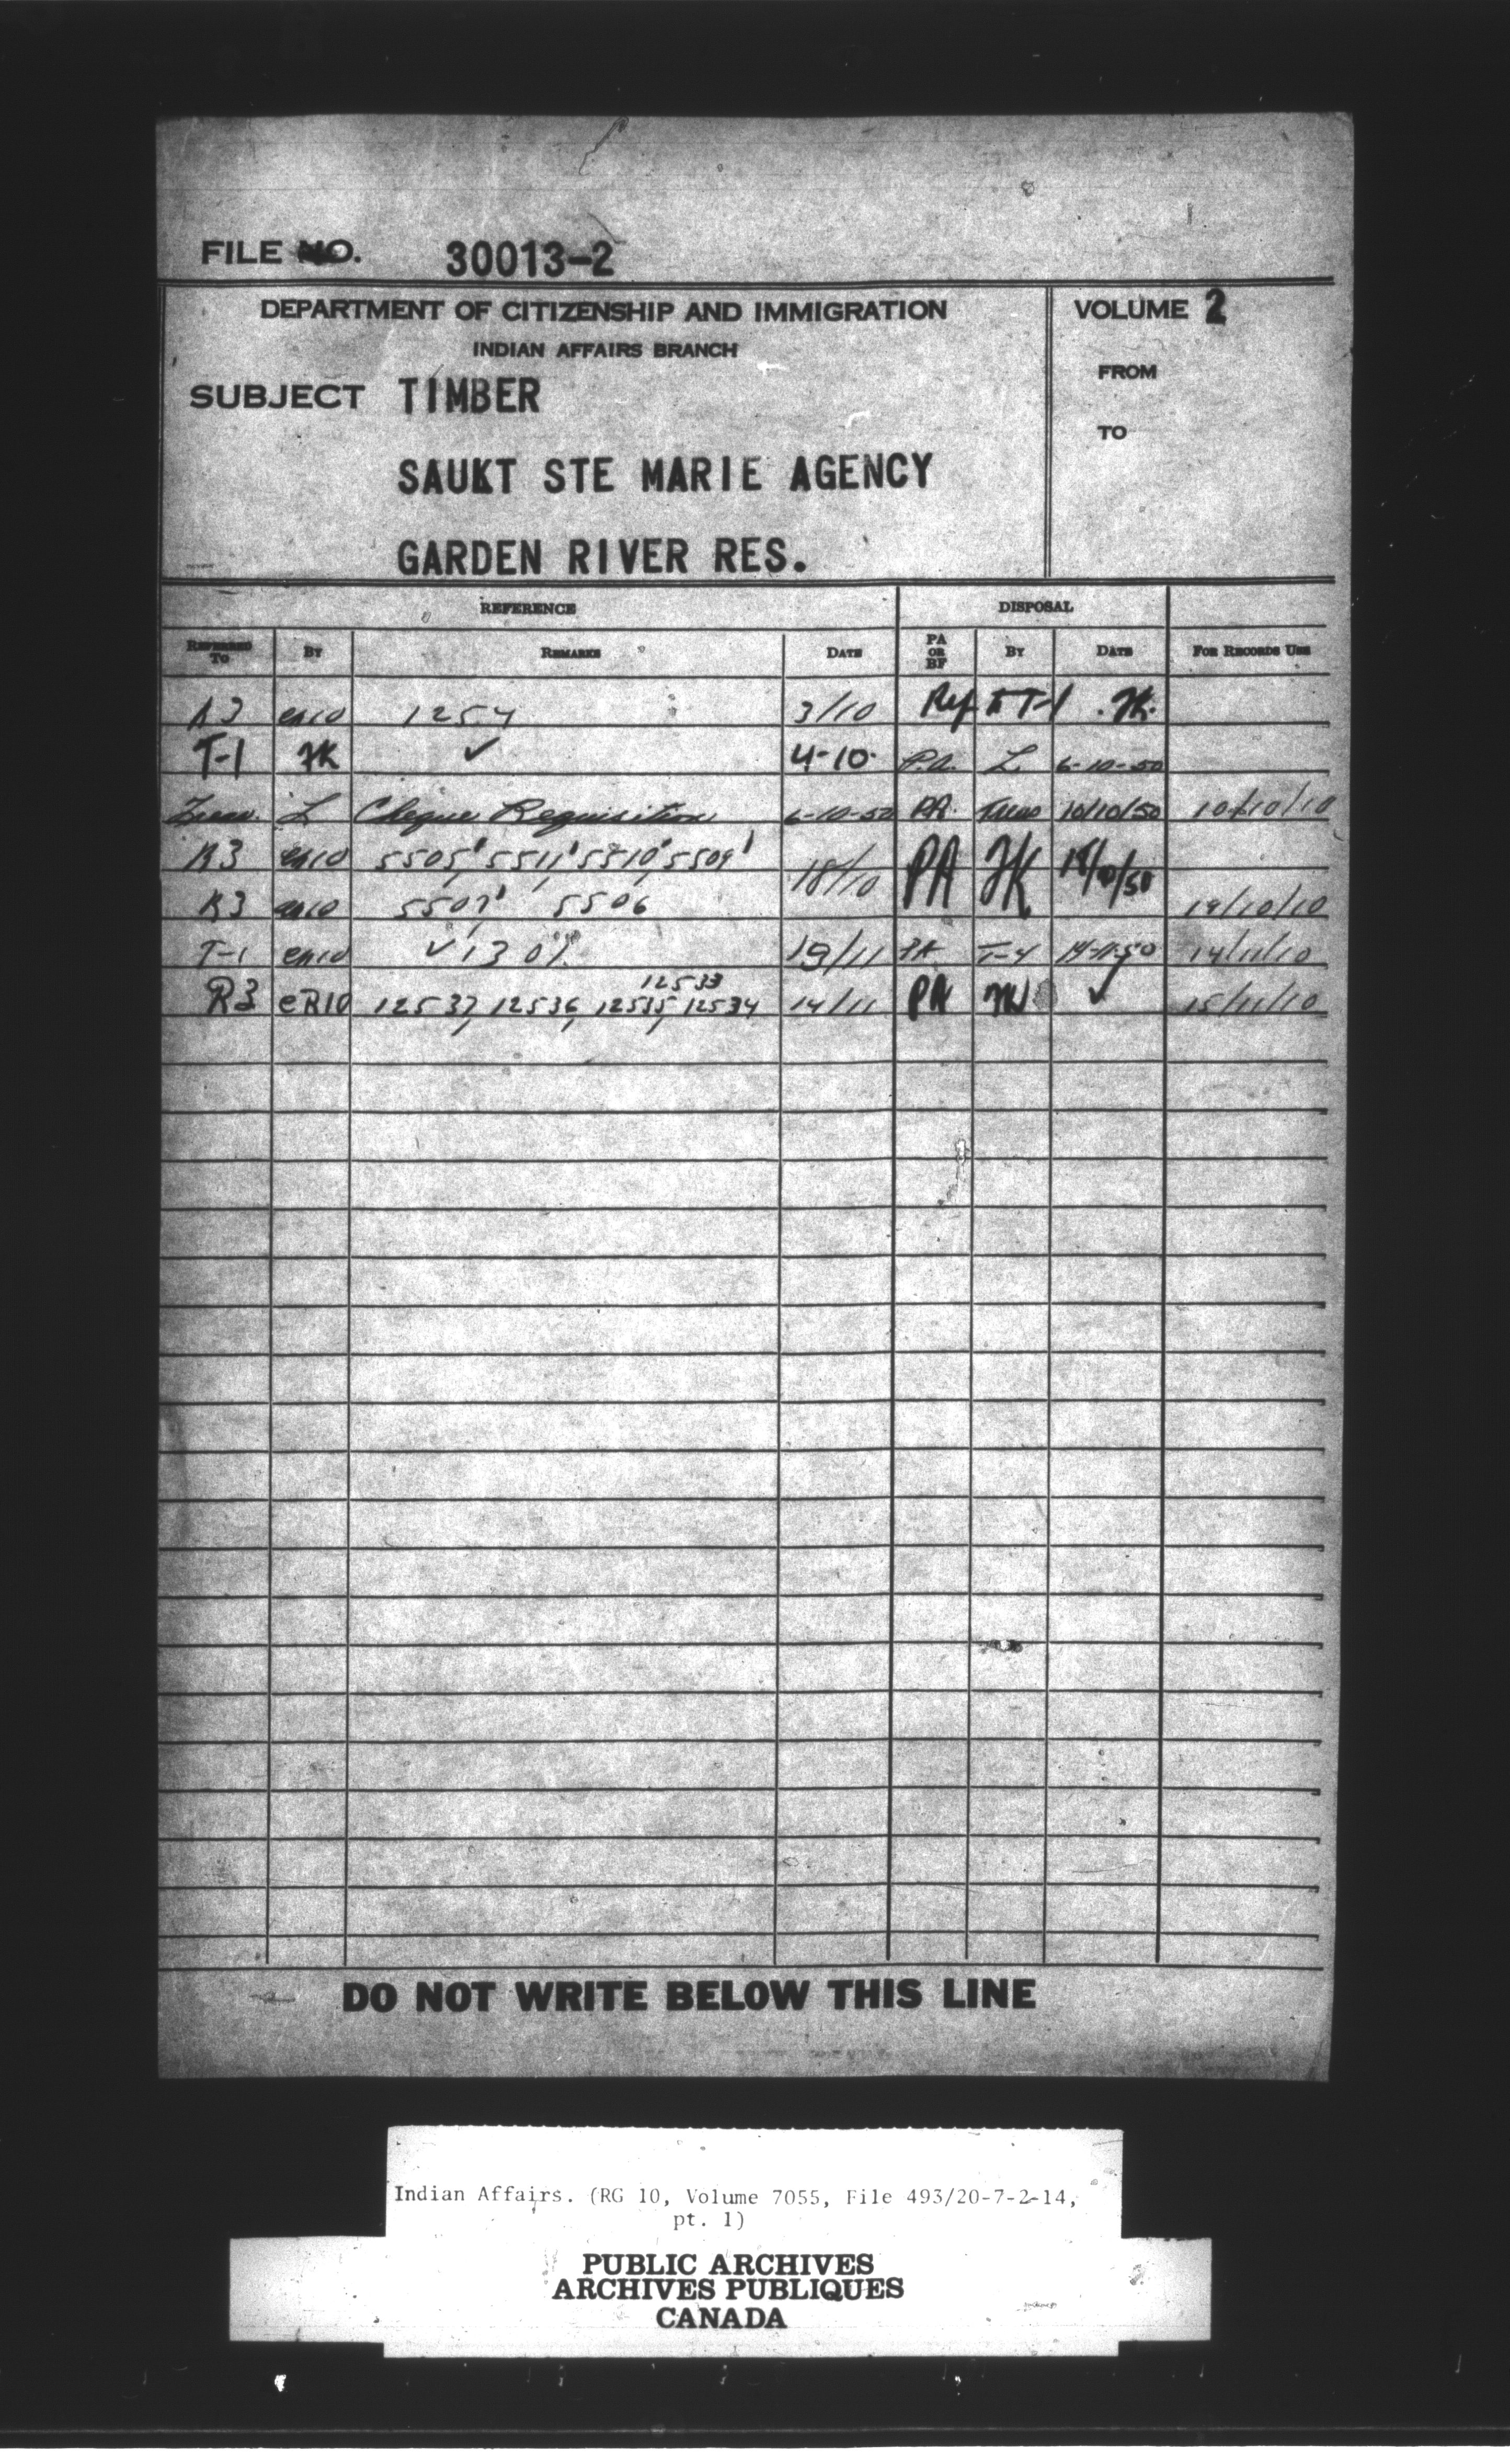 FILE NO. 30013-2
DEPARTMENT OF CITIZENSHIP AND IMMIGRATION
INDIAN AFFAIRS BRANCH
SUBJECT TIMBER
SAUKT STE MARIE AGENCY
GARDEN RIVER RES.
VOLUME 2
FROM
TO
REFERENCE DISPOSAL
REFERRED TO BY REMARKS DATE PA OR BF BY DATE FOR RECORDS USE
R3 1254 3/10 Ref to T-1 JK.
T-1 JK ✓ 4-10. P.A. L 6-10-50
L Cheque Requisition 6-10-50 PA Treas 10/10/50 10/10/10
R3 5505, 5511, 5510, 5509 18/10 PA JK 18/10/50
R3 5507 5506 19/10/10
T-1 ✓ PA T-4 14-11-50 14/11/10
12533
R3 eR10 12537, 12536, 12535, 12534 14/11 PA ✓ 15/11/10
DO NOT WRITE BELOW THIS LINE
Indian Affairs. (RG 10, Volume 7055, File 493/20-7-2-14,
pt. 1)
PUBLIC ARCHIVES
ARCHIVES PUBLIQUES
CANADA